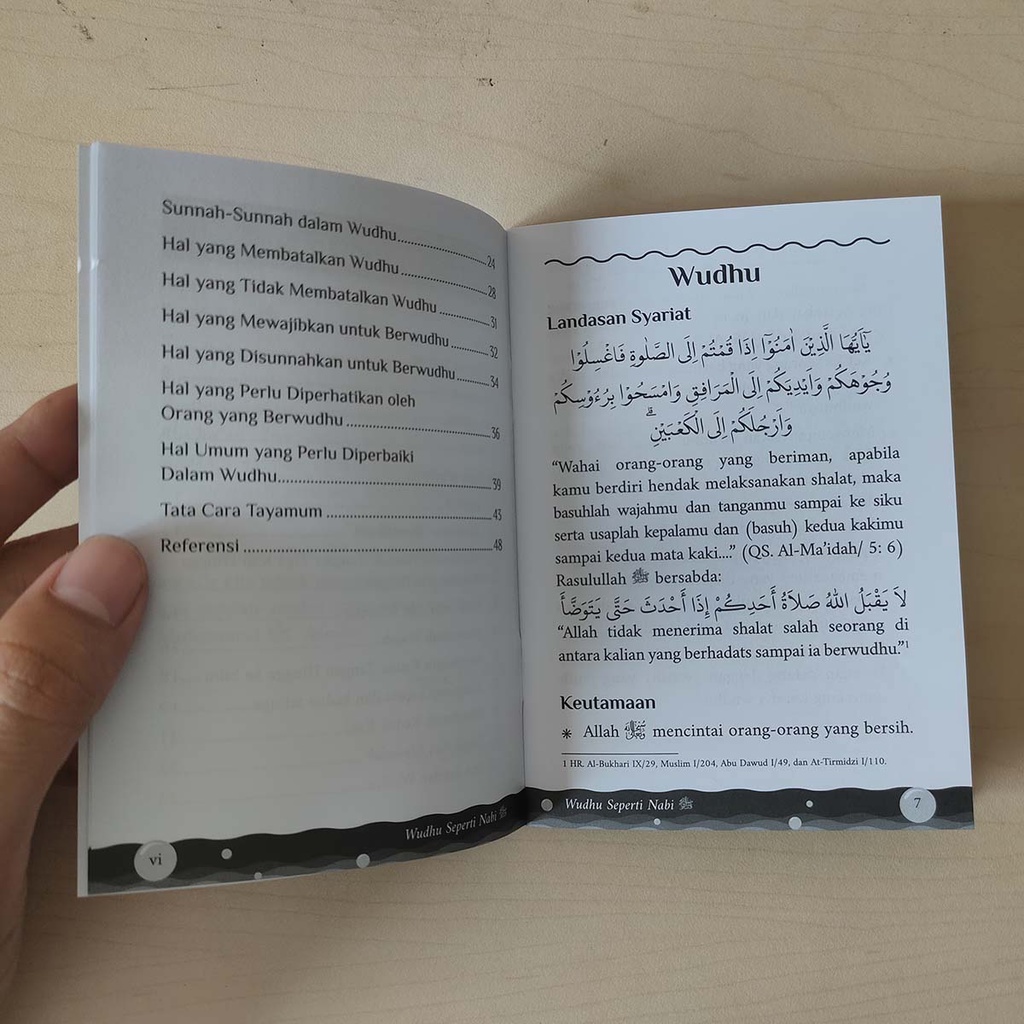 Sunnah-Sunnah dalam Wudhu..........24
Hal yang Membatalkan Wudhu..........28
Hal yang Tidak Membatalkan Wudhu..........31
Hal yang Mewajibkan untuk Berwudhu..........32
Hal yang Disunnahkan untuk Berwudhu..........34
Hal yang Perlu Diperhatikan oleh
Orang yang Berwudhu..........36
Hal Umum yang Perlu Diperbaiki
Dalam Wudhu..........39
Tata Cara Tayamum..........43
Referensi..........48
Wudhu Seperti Nabi ﷺ
vi
Wudhu
Landasan Syariat
يٰٓاَيُّهَا الَّذِيْنَ اٰمَنُوْٓا اِذَا قُمْتُمْ اِلَى الصَّلٰوةِ فَاغْسِلُوْا
وُجُوْهَكُمْ وَاَيْدِيَكُمْ اِلَى الْمَرَافِقِ وَامْسَحُوْا بِرُءُوْسِكُمْ
وَاَرْجُلَكُمْ اِلَى الْكَعْبَيْنِۗ
“Wahai orang-orang yang beriman, apabila
kamu berdiri hendak melaksanakan shalat, maka
basuhlah wajahmu dan tanganmu sampai ke siku
serta usaplah kepalamu dan (basuh) kedua kakimu
sampai kedua mata kaki....” (QS. Al-Ma’idah/ 5: 6)
Rasulullah ﷺ bersabda:
لاَ يَقْبَلُ اللهُ صَلاَةَ أَحَدِكُمْ إِذَا أَحْدَثَ حَتَّى يَتَوَضَّأَ
“Allah tidak menerima shalat salah seorang di
antara kalian yang berhadats sampai ia berwudhu.”1
Keutamaan
* Allah mencintai orang-orang yang bersih.
1 HR. Al-Bukhari IX/29, Muslim I/204, Abu Dawud I/49, dan At-Tirmidzi I/110.
Wudhu Seperti Nabi ﷺ
7